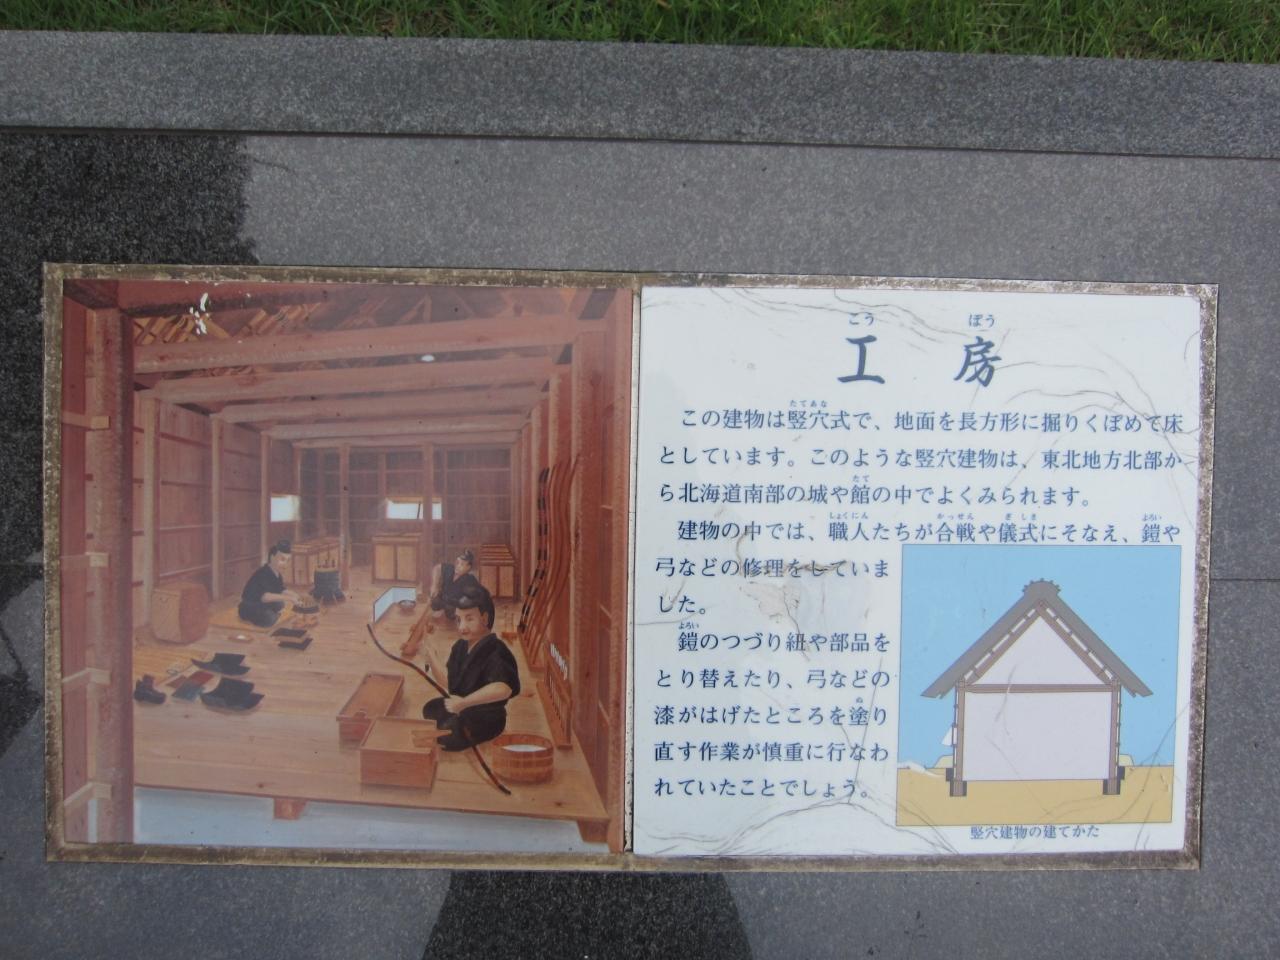 こう ぼう
工 房
この建物は竪穴式で、地面を長方形に掘りくぼめて床
たてあな
としています。このような竪穴建物は、東北地方北部か
ら北海道南部の城や館の中でよくみられます。
たて
建物の中では、職人たちが合戦や儀式にそなえ、鎧や
しょくにん かっせん ぎしき よろい
弓などの修理をしていま
した。
鎧のつづり紐や部品を
よろい
とり替えたり、弓などの
漆がはげたところを塗り
ぬ
直す作業が慎重に行なわ
れていたことでしょう。
竪穴建物の建てかた